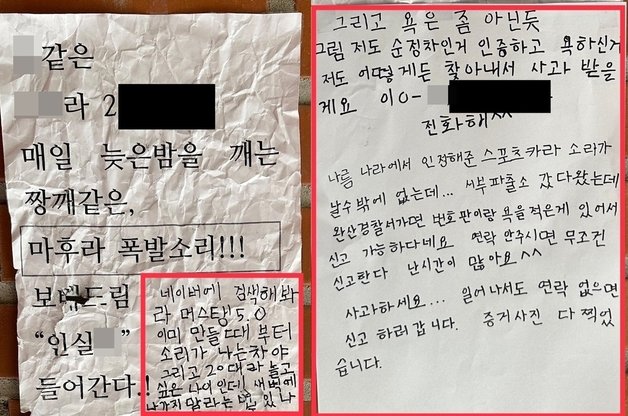 같은
라 2
매일 늦은밤을 깨는
짱깨같은,
마후라 폭발소리!!!
보배드림
“인실
들어간다.!
네이버에 검색해봐
라 머스탱 5.0
이미 만들때 부터
소리가 나는차야
그리고 20대라 놀고
싶은 나이인데! 새벽에
나가지 말라는 법 있나
그리고 욕은 좀 아닌듯
그럼 저도 순정차인거 인증하고 욕하신거
저도 어떻게든 찾아내서 사과 받을
게요 010-
전화해^^
나름 나라에서 인정해준 스포츠카라 소리가
날수 밖에 없는데... 서부파출소 갔다왔는데
완산경찰서가면 번호판이랑 욕을 적은게 있어서
신고 가능하다네요 연락 안주시면 무조건
신고한다 난시간이 많아요^^
사과하세요.... 일어나서도 연락 없으면
신고 하러갑니다. 증거사진 다 찍었
습니다.